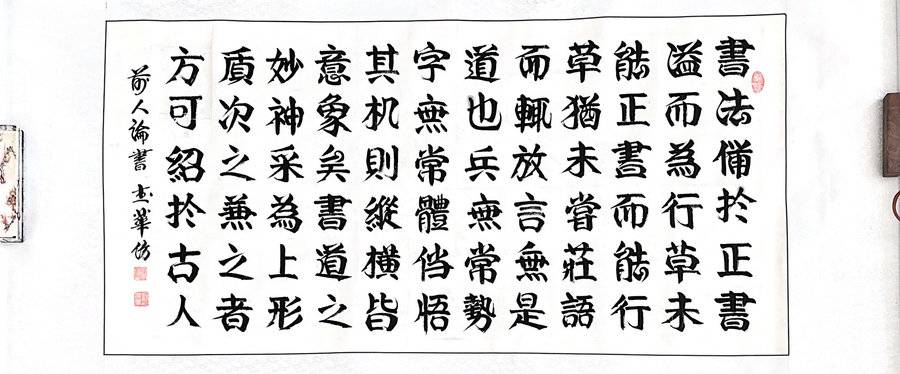 書法備於正書
溢而為行草未
能正書而能行
草猶未嘗莊語
而輒放言無是
道也兵無常勢
字無常體倘悟
其机則縱橫皆
意象矣書道之
妙神采為上形
质次之兼之者
方可紹於古人
前人論書 華